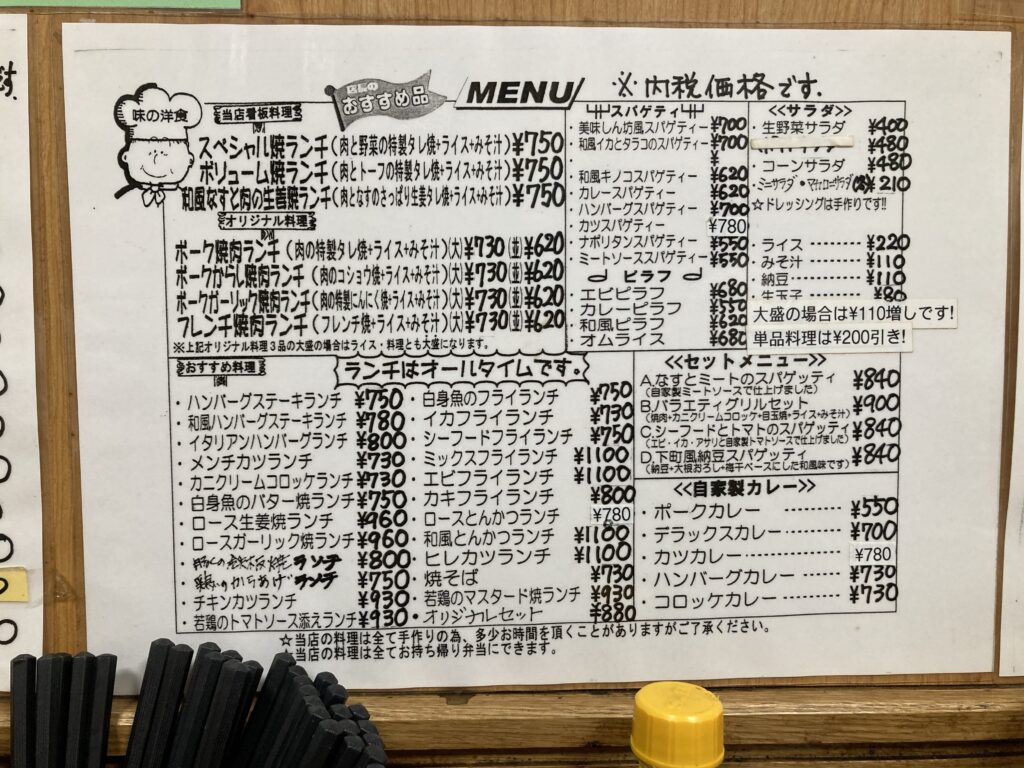 味の洋食
店長の
おすすめ品
MENU
※内税価格です.
当店看板料理
スペシャル焼ランチ(肉と野菜の特製タレ焼+ライス+みそ汁)¥750
ボリューム焼ランチ(肉とトーフの特製タレ焼+ライス+みそ汁)¥750
和風なすと肉の生姜焼ランチ(肉となすのさっぱり生姜タレ焼+ライス+みそ汁)¥750
オリジナル料理
ポーク焼肉ランチ(肉の特製タレ焼+ライス+みそ汁)(大)¥730(並)¥620
ポークからし焼肉ランチ(肉のコショウ焼+ライス+みそ汁)(大)¥730(並)¥620
ポークガーリック焼肉ランチ(肉の特製にんにく焼+ライス+みそ汁)(大)¥730(並)¥620
フレンチ焼肉ランチ(フレンチ焼+ライス+みそ汁)(大)¥730(並)¥620
※上記オリジナル料理3品の大盛の場合はライス・料理とも大盛になります。
おすすめ料理
ランチはオールタイムです.
・ハンバーグステーキランチ ¥750
・和風ハンバーグステーキランチ ¥780
・イタリアンハンバーグランチ ¥800
・メンチカツランチ ¥730
・カニクリームコロッケランチ ¥730
・白身魚のバター焼ランチ ¥750
・ロース生姜焼ランチ ¥960
・ロースガーリック焼ランチ ¥960
ランチ ¥800
・鶏のからあげランチ ¥750
・チキンカツランチ ¥930
・若鶏のトマトソース添えランチ ¥930
・白身魚のフライランチ ¥750
・イカフライランチ ¥730
・シーフードフライランチ ¥750
・ミックスフライランチ ¥1100
・エビフライランチ ¥1100
・カキフライランチ ¥800
・ロースとんかつランチ ¥780
・和風とんかつランチ ¥1100
・ヒレカツランチ ¥1100
・焼そば ¥730
・若鶏のマスタード焼ランチ ¥930
・オリジナルセット ¥880
スパゲティ
・美味しん坊風スパゲティー ¥700
・和風イカとタラコのスパゲティー ¥700
・和風キノコスパゲティー ¥620
・カレースパゲティー ¥620
・ハンバーグスパゲティー ¥700
・カツスパゲティー ¥780
・ナポリタンスパゲティー ¥550
・ミートソーススパゲティー ¥550
ピラフ
・エビピラフ ¥680
・カレーピラフ ¥550
・和風ピラフ ¥620
・オムライス ¥680
≪サラダ≫
・生野菜サラダ ¥400
¥480
・コーンサラダ ¥480
・ミニサラダ・マカロニサラダ ¥210
☆ドレッシングは手作りです!!
・ライス ¥220
・みそ汁 ¥110
・納豆 ¥110
・生玉子 ¥80
大盛の場合は¥110増しです!
単品料理は¥200引き!
≪セットメニュー≫
A.なすとミートのスパゲッティ ¥840
(自家製ミートソースで仕上げました)
B.バラエティグリルセット ¥900
(焼肉+カニクリームコロッケ+目玉焼+ライス+みそ汁)
C.シーフードとトマトのスパゲッティ ¥840
(エビ・イカ・アサリと自家製トマトソースで仕上げました)
D.下町風納豆スパゲッティ ¥840
(納豆+大根おろし+梅干ベースにした和風味です)
≪自家製カレー≫
・ポークカレー ¥550
・デラックスカレー ¥700
・カツカレー ¥780
・ハンバーグカレー ¥730
・コロッケカレー ¥730
☆当店の料理は全て手作りの為、多少お時間を頂くことがありますがご了承ください。
当店の料理は全てお持ち帰り弁当にできます。